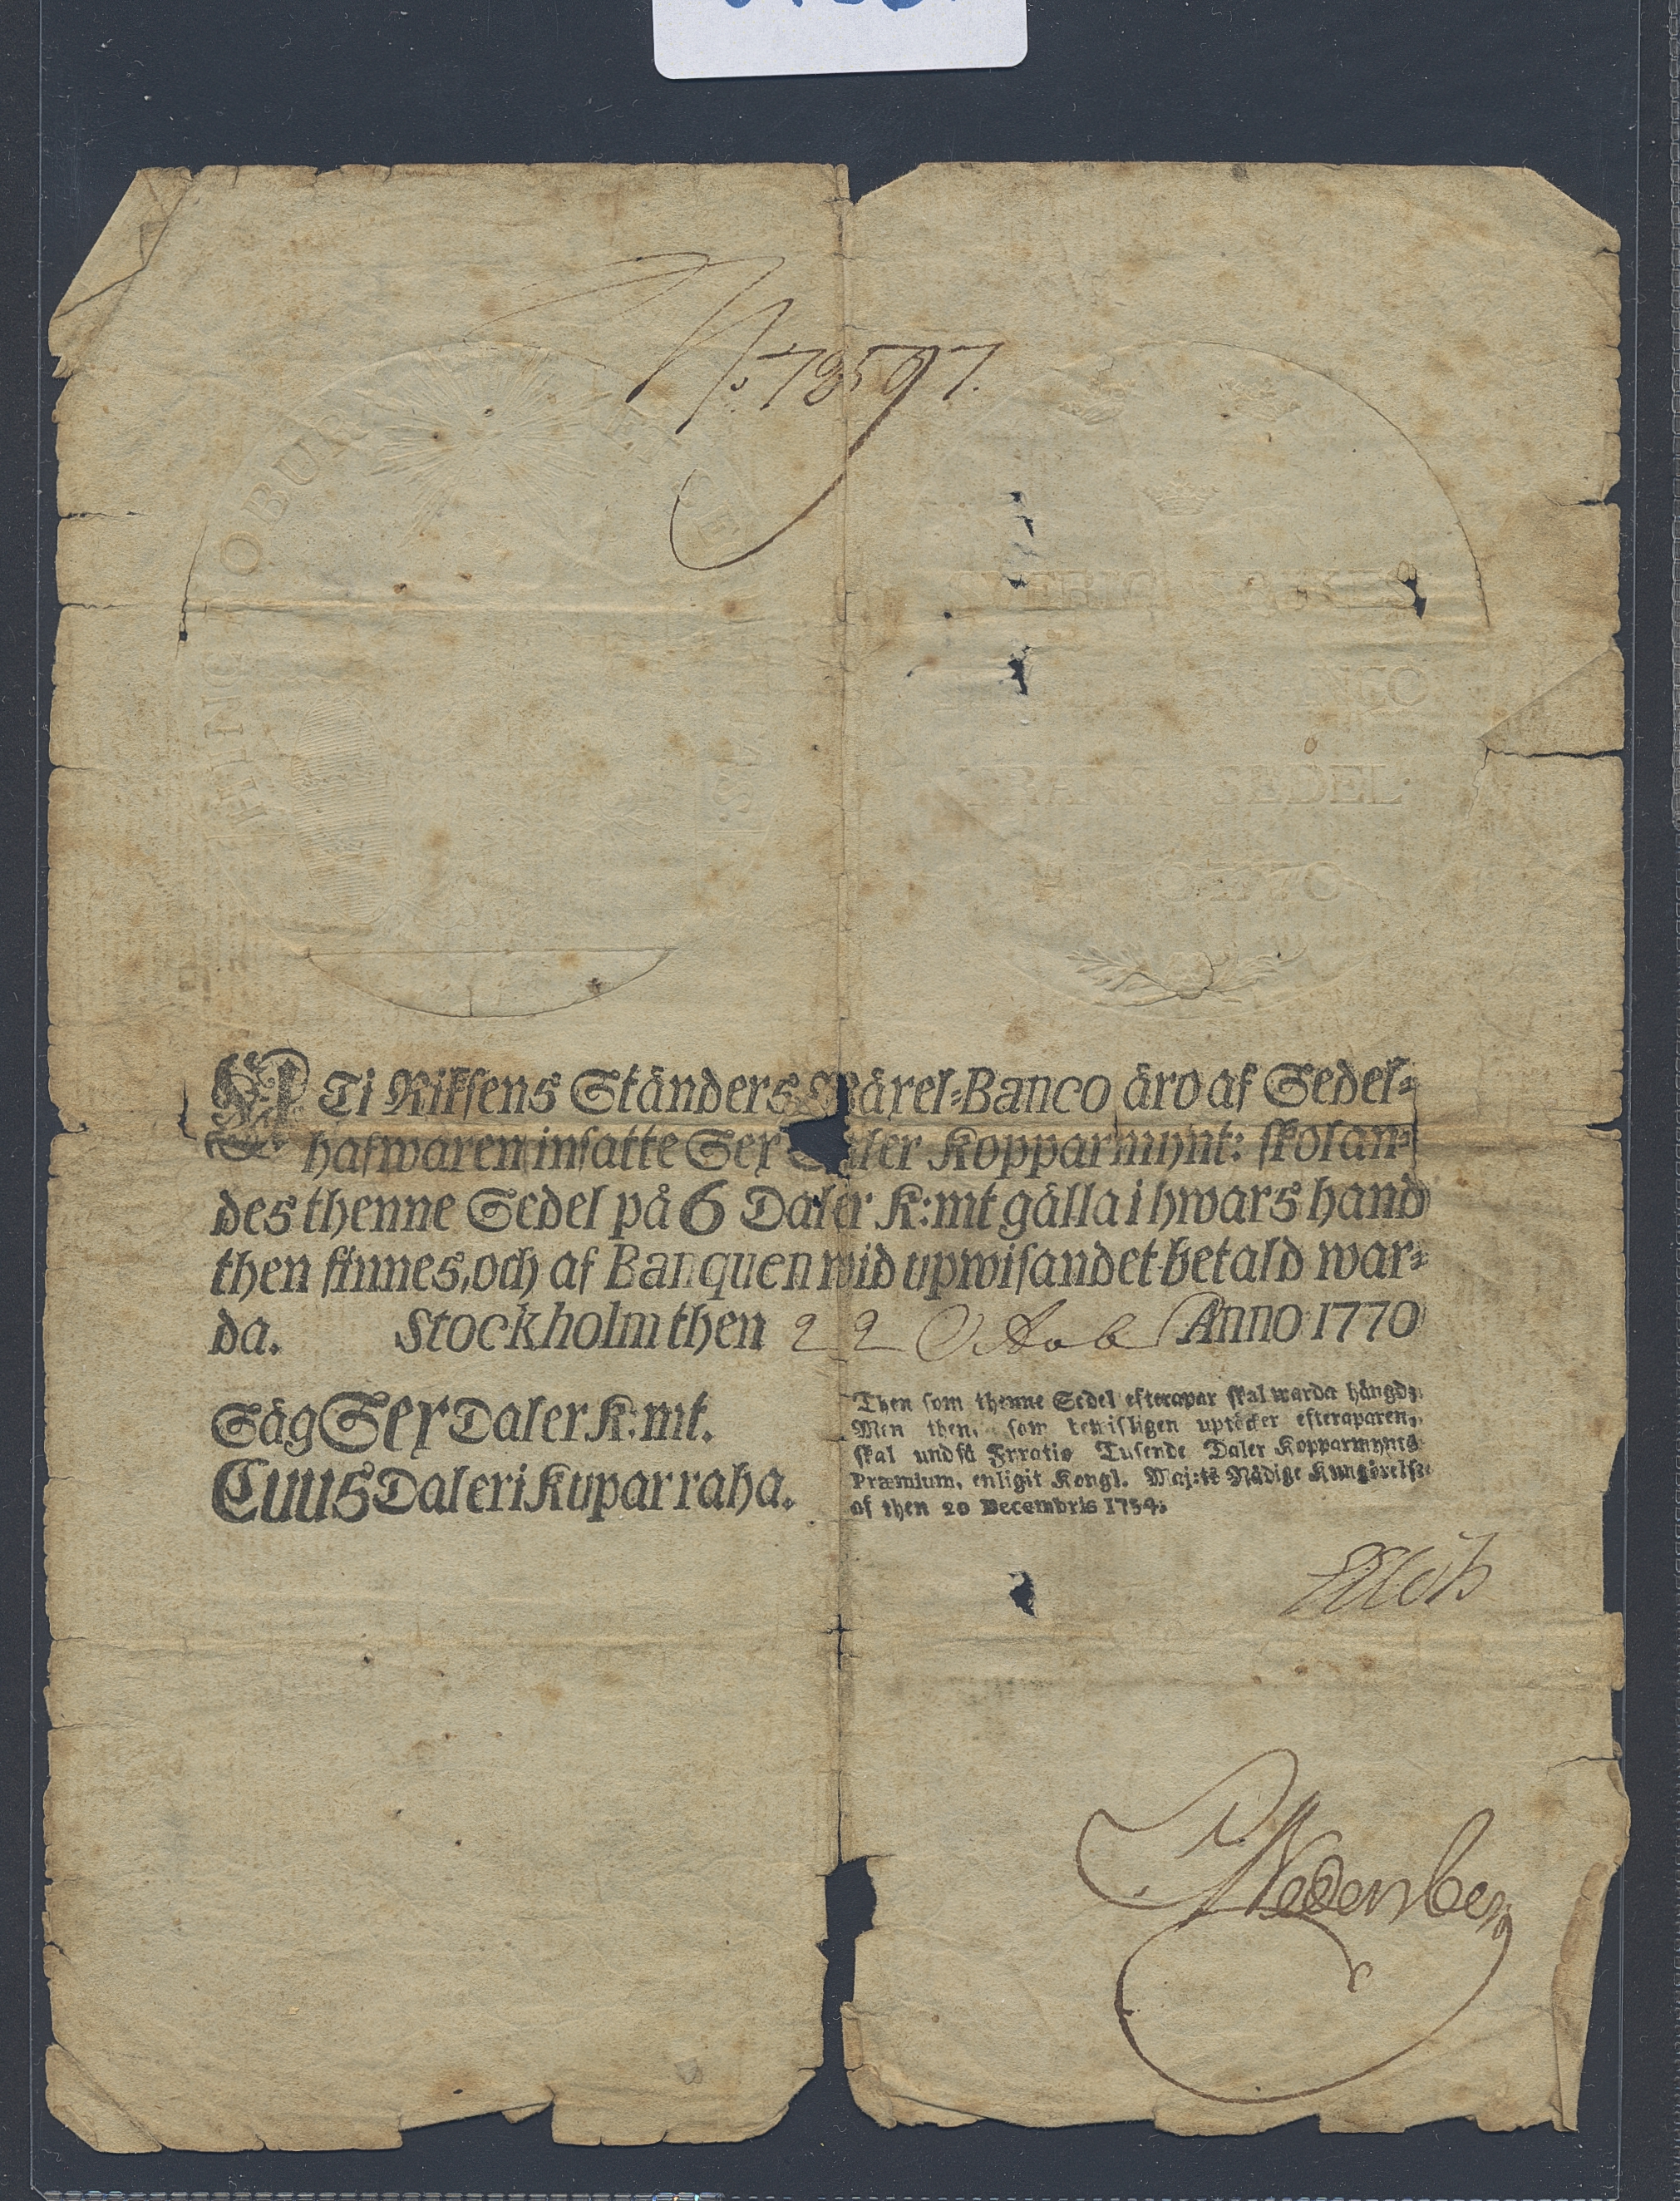 No. 78597.
HINC ROBUR ET SE TAS
RIKS
NCO
TRANSP. SEDEL
Ti Riksens Ständers Wäxel=Banco äro af Sedel=
hafwaren insatte Sex Daler Kopparmynt: skolan=
des thenne Sedel på 6 Daler K:mt gälla i hwars hand
then finnes, och af Banquen wid upwisandet betald war=
da. Stockholm then 22 Octob Anno 1770
Säg Sex Daler K:mt.
Cuus Daleri Kuparraha.
Then som thenne Sedel efterapar skal warda hängd;
Men then, som bewisligen uptäcker efteraparen,
skal undfå Fyratio Tusende Daler Kopparmynts
Præmium, enligit Kongl. Maj:ts Nådige Kungörelse
af then 20 Decembris 1754.
Wedenberg